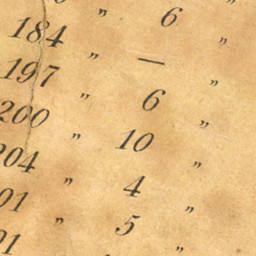 ” 6 ”
184 ” — ”
197 ” 6 ”
200 ” 10 ”
204 ” 4 ”
01 ” 5 ”
01 ”